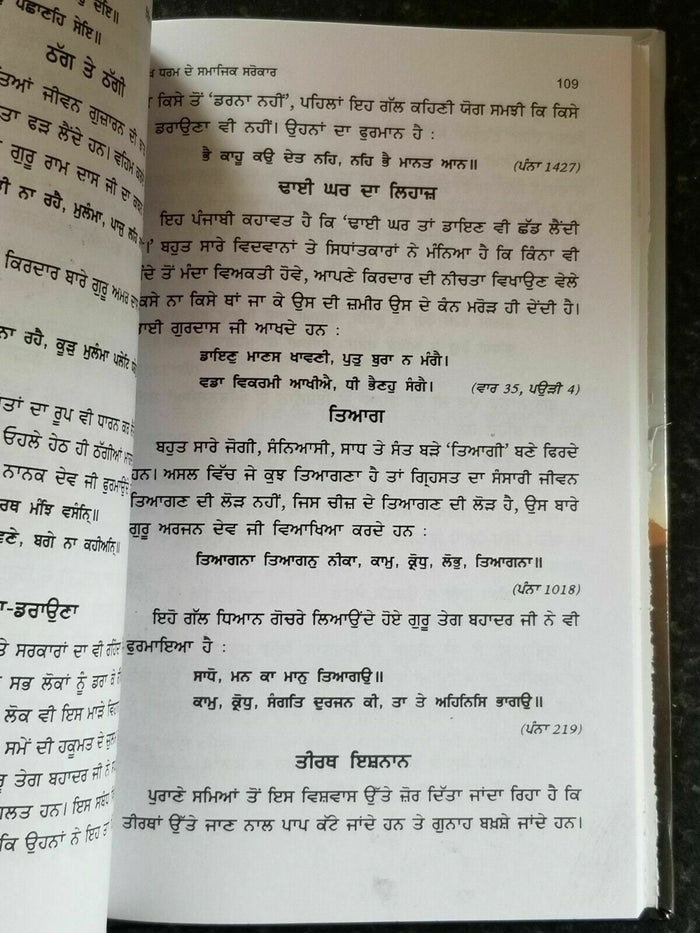 ਦੇਇ॥
ਪਛਾਣਹਿ ਸੇਇ॥
ਠੱਗ ਤੇ ਠੱਗੀ
ਜੀਵਨ ਗੁਜ਼ਾਰਨ ਦੀ
ਫੜ ਲੈਂਦੇ ਹਨ। ਵਹਿਮ
ਗੁਰੂ ਰਾਮ ਦਾਸ ਜੀ ਦਾ
ਨਾ ਰਹੈ, ਮੁਲੰਮਾ, ਪਾਜੁ
ਕਿਰਦਾਰ ਬਾਰੇ ਗੁਰੂ ਅਮਰ
ਨਾ ਰਹੈ, ਕੂੜੁ ਮੁਲੰਮਾ ਪਲੇਟਿ
ਦਾ ਰੂਪ ਵੀ ਧਾਰਨ ਕਰ
ਓਹਲੇ ਹੇਠ ਹੀ ਠੱਗੀਆਂ
ਨਾਨਕ ਦੇਵ ਜੀ
ਮੰਝਿ ਵਸੰਨਿ੍॥
ਬਗੇ ਨਾ ਕਹੀਅਨਿ੍॥
ਡਰਾਉਣਾ
ਤੇ ਸਰਕਾਰਾਂ ਦਾ ਵੀ
ਸਭ ਲੋਕਾਂ ਨੂੰ ਡਰਾ ਕੇ
ਲੋਕ ਵੀ ਇਸ ਮਾੜੇ
ਸਮੇਂ ਦੀ ਹਕੂਮਤ ਦੇ
ਤੇਗ ਬਹਾਦਰ ਜੀ ਨੇ
ਹਨ। ਇਸ ਸਬੰਧ
ਕਿ ਉਹਨਾਂ ਨੇ ਇਹ ਤਾਂ
ਧਰਮ ਦੇ ਸਮਾਜਿਕ ਸਰੋਕਾਰ 109
ਕਿਸੇ ਤੋਂ ‘ਡਰਨਾ ਨਹੀਂ’, ਪਹਿਲਾਂ ਇਹ ਗੱਲ ਕਹਿਣੀ ਯੋਗ ਸਮਝੀ ਕਿ ਕਿਸੇ
ਡਰਾਉਣਾ ਵੀ ਨਹੀਂ। ਉਹਨਾਂ ਦਾ ਫੁਰਮਾਨ ਹੈ :
ਭੈ ਕਾਹੂ ਕਉ ਦੇਤ ਨਹਿ, ਨਹਿ ਭੈ ਮਾਨਤ ਆਨ॥ (ਪੰਨਾ 1427)
ਢਾਈ ਘਰ ਦਾ ਲਿਹਾਜ਼
ਇਹ ਪੰਜਾਬੀ ਕਹਾਵਤ ਹੈ ਕਿ ‘ਢਾਈ ਘਰ ਤਾਂ ਡਾਇਣ ਵੀ ਛੱਡ ਲੈਂਦੀ
।’ ਬਹੁਤ ਸਾਰੇ ਵਿਦਵਾਨਾਂ ਤੇ ਸਿਧਾਂਤਕਾਰਾਂ ਨੇ ਮੰਨਿਆ ਹੈ ਕਿ ਕਿੰਨਾ ਵੀ
ਤੋਂ ਮੰਦਾ ਵਿਅਕਤੀ ਹੋਵੇ, ਆਪਣੇ ਕਿਰਦਾਰ ਦੀ ਨੀਚਤਾ ਵਿਖਾਉਣ ਵੇਲੇ
ਕਿਸੇ ਨਾ ਕਿਸੇ ਥਾਂ ਜਾ ਕੇ ਉਸ ਦੀ ਜ਼ਮੀਰ ਉਸ ਦੇ ਕੰਨ ਮਰੋੜ ਹੀ ਦੇਂਦੀ ਹੈ।
ਭਾਈ ਗੁਰਦਾਸ ਜੀ ਆਖਦੇ ਹਨ :
ਡਾਇਣੁ ਮਾਣਸ ਖਾਵਣੀ, ਪੁਤੁ ਬੁਰਾ ਨ ਮੰਗੈ।
ਵਡਾ ਵਿਕਰਮੀ ਆਖੀਐ, ਧੀ ਭੈਣਹੁ ਸੰਗੈ। (ਵਾਰ 35, ਪਉੜੀ 4)
ਤਿਆਗ
ਬਹੁਤ ਸਾਰੇ ਜੋਗੀ, ਸੰਨਿਆਸੀ, ਸਾਧ ਤੇ ਸੰਤ ਬੜੇ ‘ਤਿਆਗੀ’ ਬਣੇ ਫਿਰਦੇ
ਹਨ। ਅਸਲ ਵਿੱਚ ਜੇ ਕੁਝ ਤਿਆਗਣਾ ਹੈ ਤਾਂ ਗ੍ਰਿਹਸਤ ਦਾ ਸੰਸਾਰੀ ਜੀਵਨ
ਤਿਆਗਣ ਦੀ ਲੋੜ ਨਹੀਂ, ਜਿਸ ਚੀਜ਼ ਦੇ ਤਿਆਗਣ ਦੀ ਲੋੜ ਹੈ, ਉਸ ਬਾਰੇ
ਗੁਰੂ ਅਰਜਨ ਦੇਵ ਜੀ ਵਿਆਖਿਆ ਕਰਦੇ ਹਨ :
ਤਿਆਗਨਾ ਤਿਆਗਨੁ ਨੀਕਾ, ਕਾਮੁ, ਕ੍ਰੋਧੁ, ਲੋਭੁ, ਤਿਆਗਨਾ॥
(ਪੰਨਾ 1018)
ਇਹੋ ਗੱਲ ਧਿਆਨ ਗੋਚਰੇ ਲਿਆਉਂਦੇ ਹੋਏ ਗੁਰੂ ਤੇਗ ਬਹਾਦਰ ਜੀ ਨੇ ਵੀ
ਫੁਰਮਾਇਆ ਹੈ :
ਸਾਧੋ, ਮਨ ਕਾ ਮਾਨੁ ਤਿਆਗਉ॥
ਕਾਮੁ, ਕ੍ਰੋਧੁ, ਸੰਗਤਿ ਦੁਰਜਨ ਕੀ, ਤਾ ਤੇ ਅਹਿਨਿਸਿ ਭਾਗਉ॥
(ਪੰਨਾ 219)
ਤੀਰਥ ਇਸ਼ਨਾਨ
ਪੁਰਾਣੇ ਸਮਿਆਂ ਤੋਂ ਇਸ ਵਿਸ਼ਵਾਸ ਉੱਤੇ ਜ਼ੋਰ ਦਿੱਤਾ ਜਾਂਦਾ ਰਿਹਾ ਹੈ ਕਿ
ਤੀਰਥਾਂ ਉੱਤੇ ਜਾਣ ਨਾਲ ਪਾਪ ਕੱਟੇ ਜਾਂਦੇ ਹਨ ਤੇ ਗੁਨਾਹ ਬਖ਼ਸ਼ੇ ਜਾਂਦੇ ਹਨ।